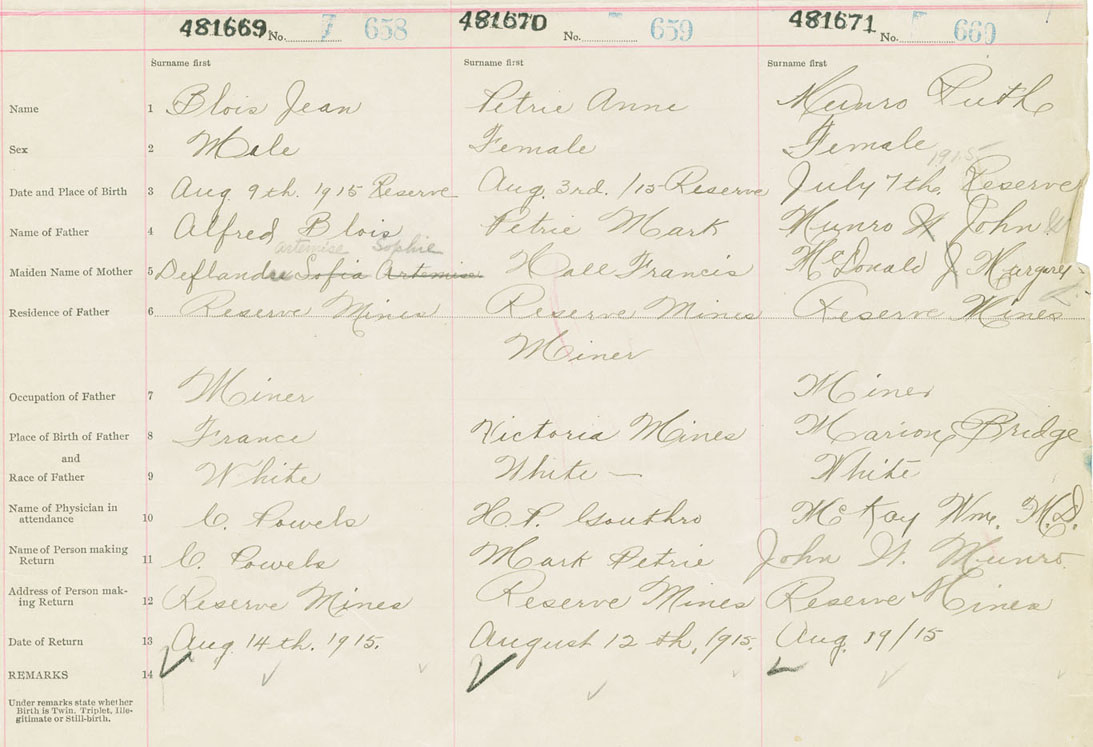 481669 No. 7 658 481670 No. 659 481671 No. 660
Surname first Surname first Surname first
Name 1 Blois Jean Petrie Anne Munro Ruth
Sex 2 Male Female Female
1915
Date and Place of Birth 3 Aug 9th. 1915 Reserve Aug. 3rd. /15 Reserve July 7th. Reserve
Name of Father 4 Alfred Blois Petrie Mark Munro John W
artemise Sophie
Maiden Name of Mother 5 Deflandre Sofia Artemise Hall Francis McDonald J Margret
Residence of Father 6 Reserve Mines Reserve Mines Reserve Mines
Miner
Occupation of Father 7 Miner Miner
Place of Birth of Father 8 France Victoria Mines Marion Bridge
and
Race of Father 9 White White — White
Name of Physician in
attendance 10 C. Powels H. P. Gouthro McKay Wm. M.D.
Name of Person making
Return 11 C. Powels Mark Petrie John W. Munro.
Address of Person mak-
ing Return 12 Reserve Mines Reserve Mines Reserve Mines
Date of Return 13 Aug 14th. 1915. August 12th, 1915. Aug. 19/15
REMARKS 14
Under remarks state whether
Birth is Twin, Triplet, Ille-
gitimate or Still-birth.